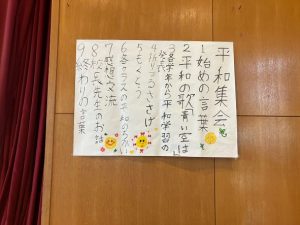 平和集会
1 始めの言葉
2 平和の歌「青い空は」
3 各学年から平和学習の
発表
4 折りづるささげ
5 もくとう
6 各クラスの平和のちかい
7 感想交流
8 校長先生のお話
9 終わりの言葉